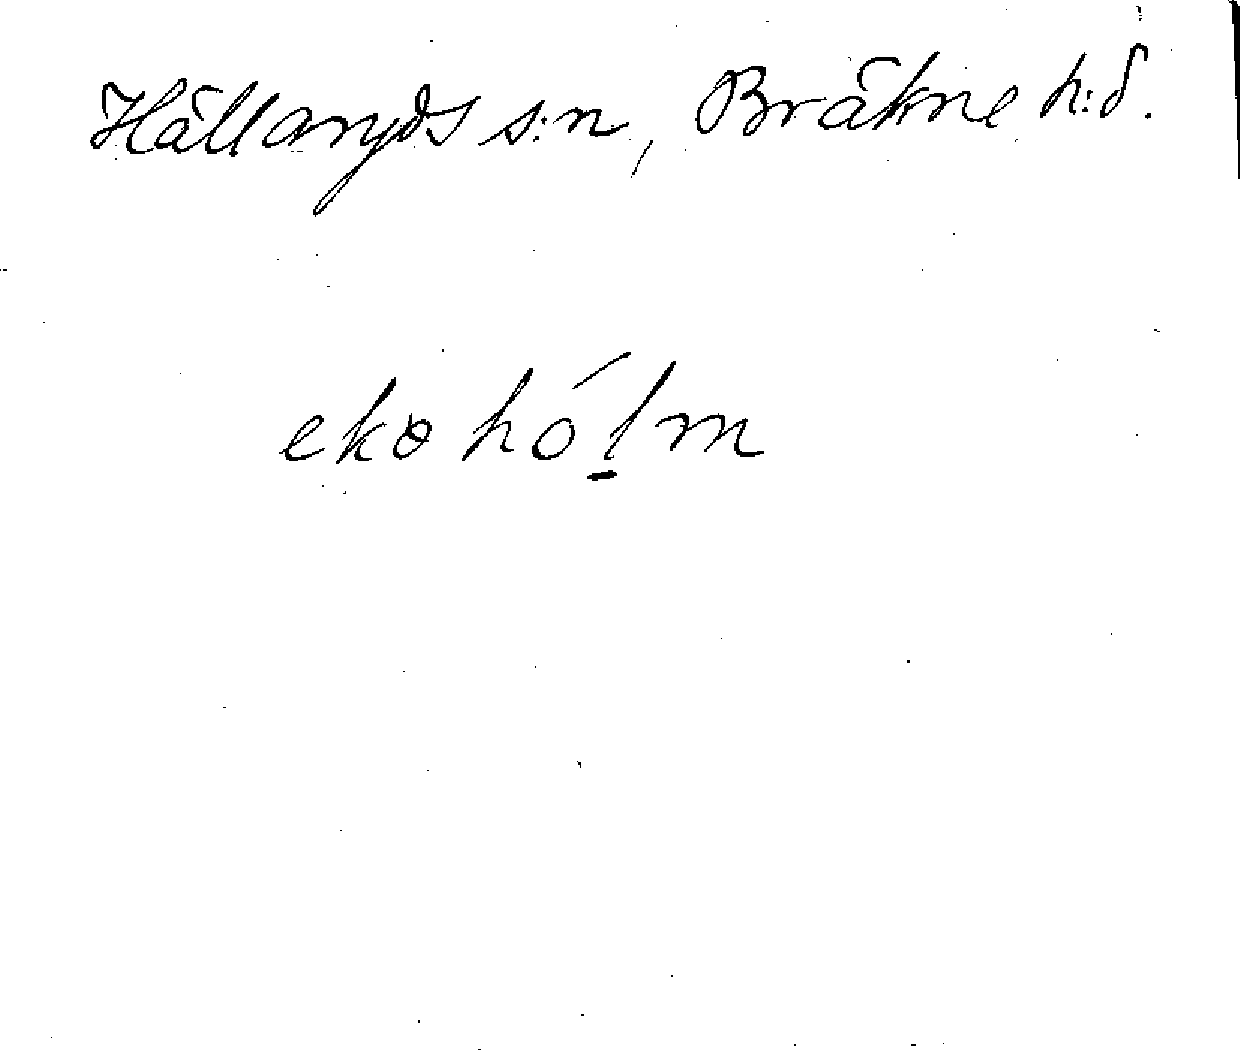 Hällaryds s:n, Bräkne h:d.
ekəhól̠m